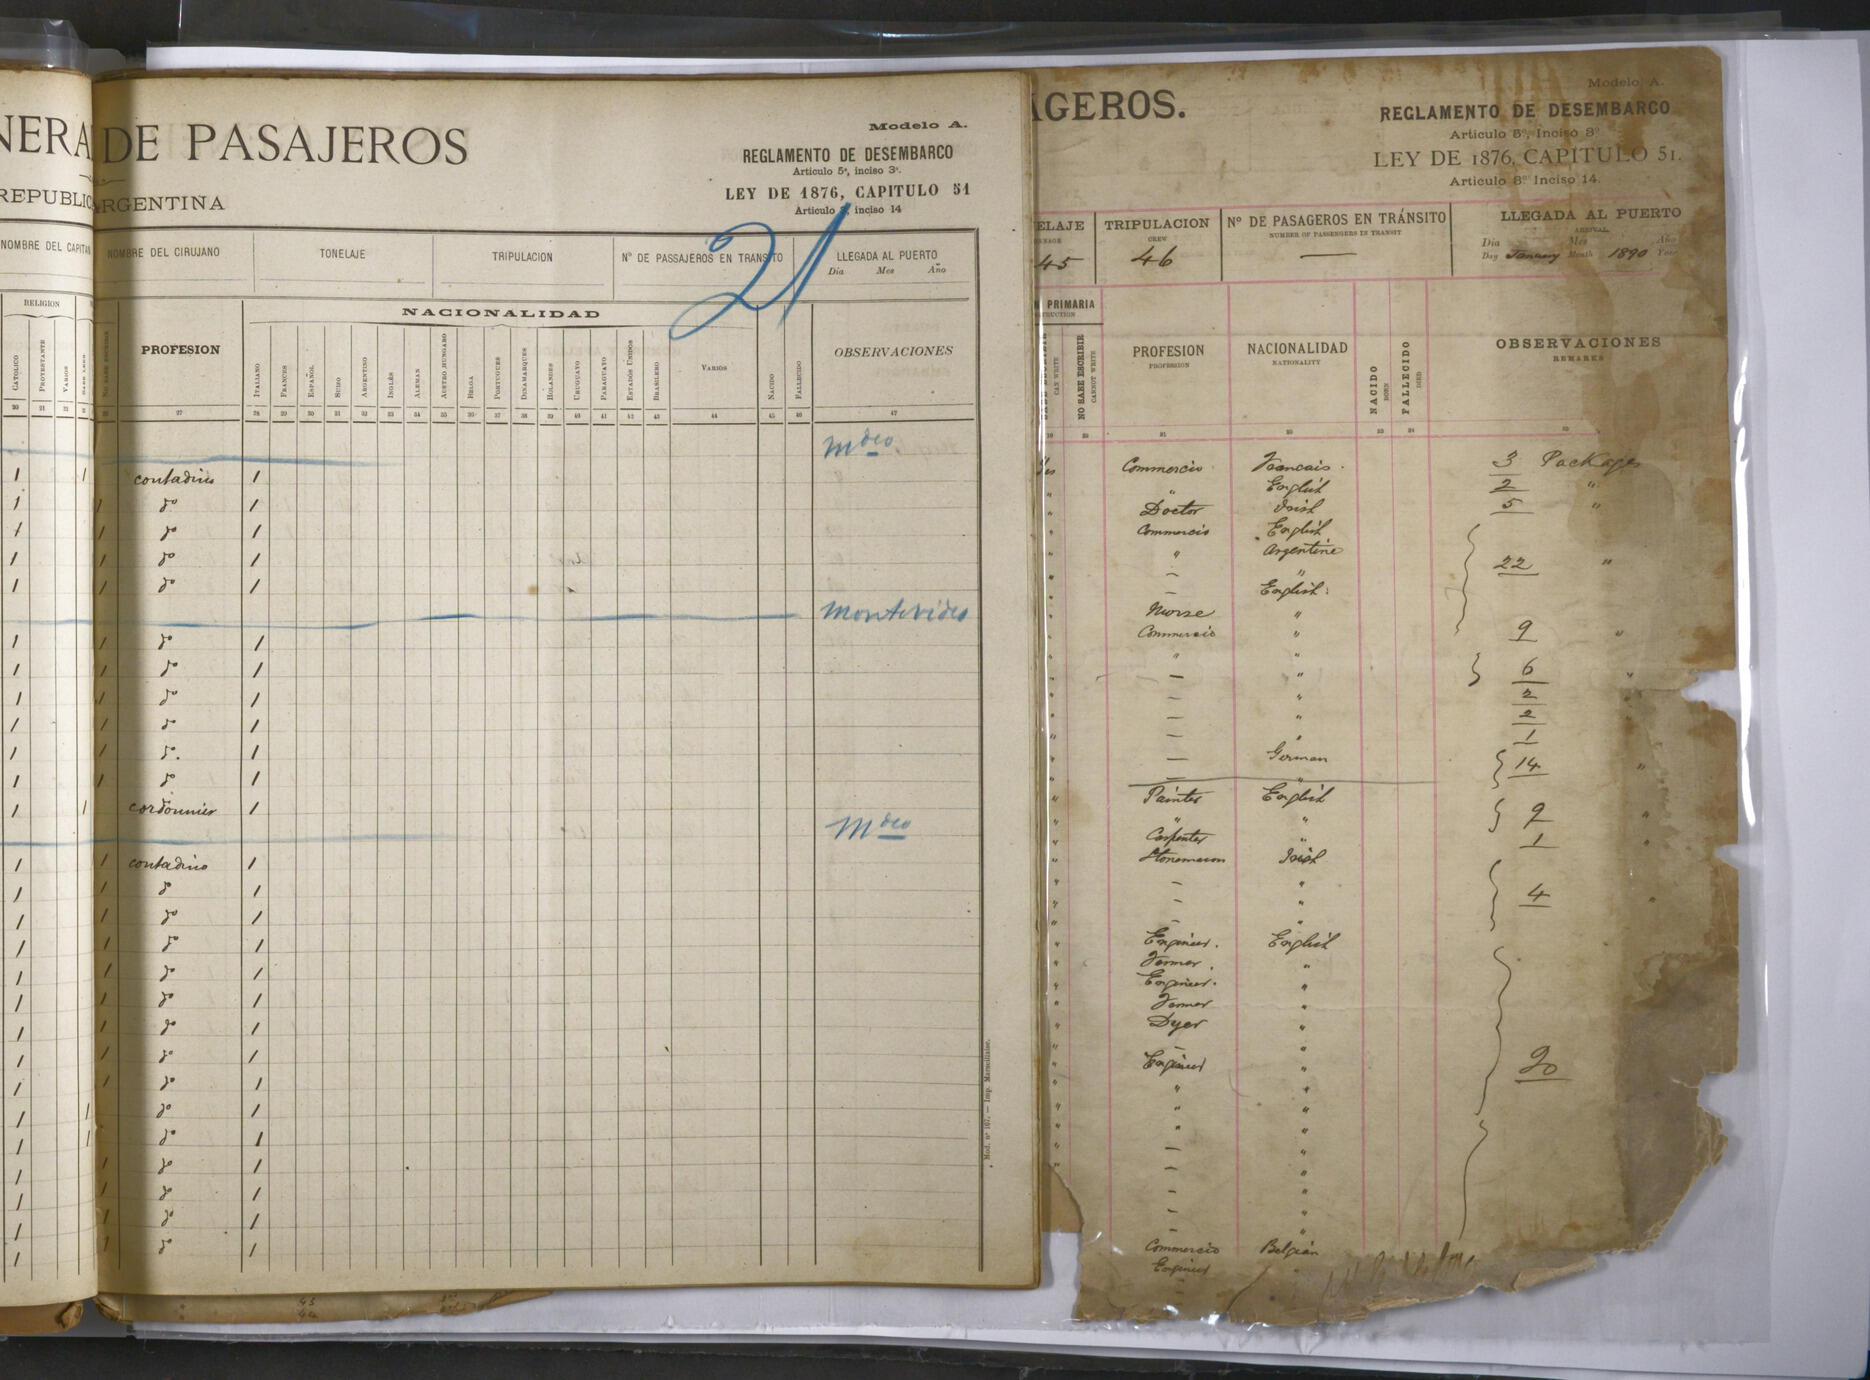 NERA
DE PASAJEROS
REPUBLIC
ARGENTINA
Modelo A.
REGLAMENTO DE DESEMBARCO
Articulo 5º, inciso 3º.
LEY DE 1876, CAPITULO 51
Articulo 8, inciso 14
21
NOMBRE DEL CAPITAN
NOMBRE DEL CIRUJANO
TONELAJE
TRIPULACION
Nº DE PASSAJEROS EN TRANSITO
LLEGADA AL PUERTO
Dia Mes Año
RELIGION
CATOLICO
PROTESTANTE
VARIOS
PROFESION
NACIONALIDAD
ITALIANO
FRANCES
ESPAÑOL
SUIZO
ARGENTINO
INGLÉS
ALEMAN
AUSTRO HUNGARO
BELGA
PORTUGUES
DINAMARQUES
HOLANDES
URUGUAYO
PARAGUAYO
ESTADOS UNIDOS
BRASILERO
VARIOS
NACIDO
FALLECIDO
OBSERVACIONES
20 21 22 27 28 29 30 31 32 33 34 35 36 37 38 39 40 41 42 43 44 45 46 47
Mdeo
1 1 contadino 1
1 1 do 1
1 1 do 1
1 1 do 1
1 1 do 1
Montevideo
1 1 do 1
1 1 do 1
1 1 do 1
1 1 do 1
1 1 do. 1
1 1 do 1
1 1 cordonnier 1
Mdeo
1 1 contadino 1
1 1 do 1
1 1 do 1
1 1 do 1
1 1 do 1
1 1 do 1
1 1 do 1
1 1 do 1
1 1 do 1
1 1 do 1
1 1 do 1
1 1 do 1
1 1 do 1
1 1 do 1
1 1 do 1
Mod. nº 167. — Imp. Marseillaise.
AGEROS.
Modelo A.
REGLAMENTO DE DESEMBARCO
Articulo 5º, Inciso 3º
LEY DE 1876, CAPITULO 51.
Articulo 8º Inciso 14.
ELAJE
TRIPULACION
CREW
Nº DE PASAGEROS EN TRÁNSITO
NUMBER OF PASSENGERS IN TRANSIT
LLEGADA AL PUERTO
ARRIVAL
Dia Mes Año
Day January Month 1890 Year
45
46
—
PRIMARIA
CAN WRITE
NO SABE ESCRIBIR
CANNOT WRITE
PROFESION
PROFESSION
NACIONALIDAD
NATIONALITY
NACIDO
BORN
FALLECIDO
DIED
OBSERVACIONES
REMARKS
Commercio Francais. 3 Packages
" English 2 "
Doctor Irish 5 "
Commercio English
" Argentine
— " 22 "
— English.
Nurse "
Commercio " 9 "
" "
— " 6 "
— " 2
— " 2
— " 1
— German 14 "
— "
Painter English
" " 9 "
Carpenter " 1 "
Stonemason Irish
— "
— " 4 "
— "
Engineer. English
Farmer. "
Engineer. "
Farmer "
Dyer "
— "
Engineer " 20
" "
" "
" "
— "
— "
— "
— "
— "
Commercio Belgian
Engineer